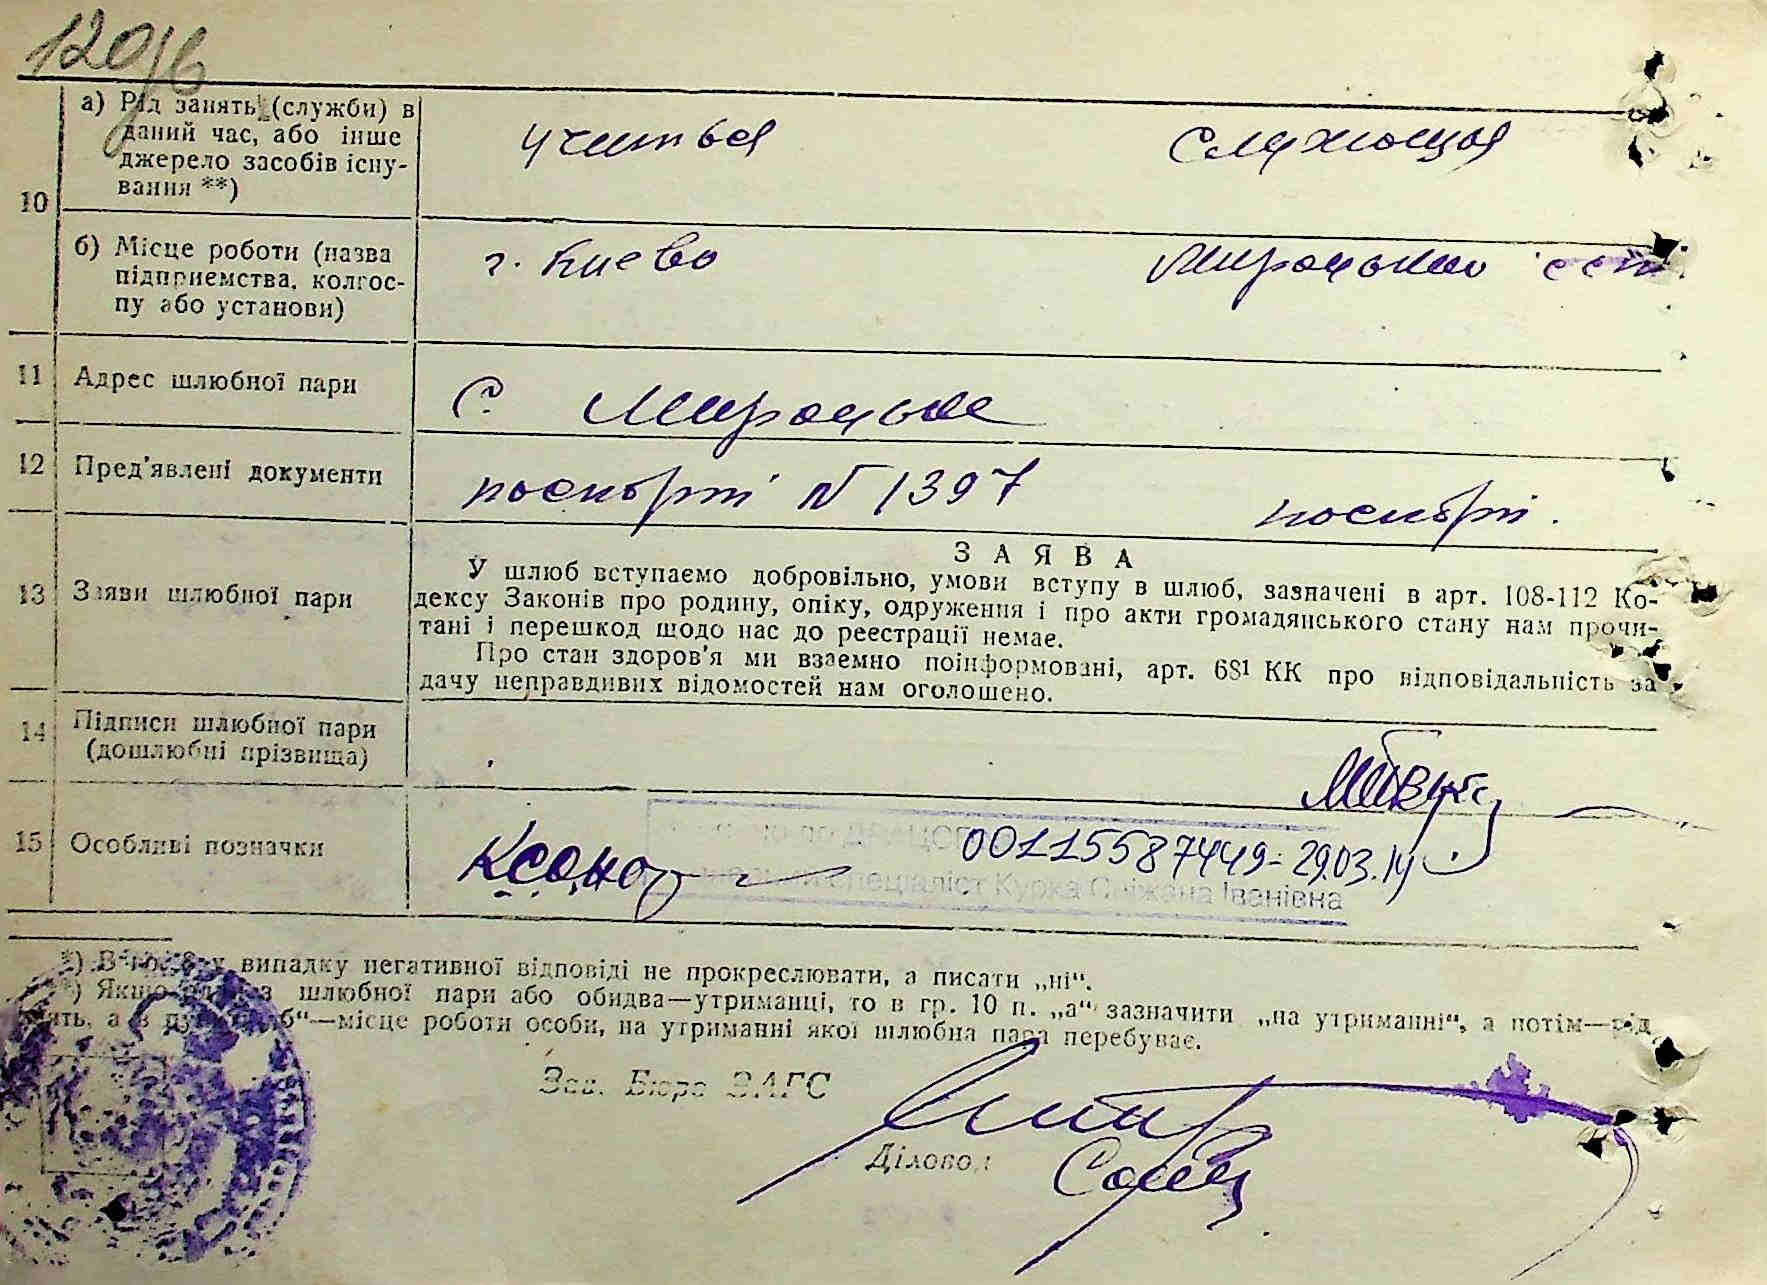 а) Рід занять (служби) в
даний час, або інше
джерело засобів існу-
вання **)
учиться
служющая
10
б) Місце роботи (назва
підприємства, колгос-
пу або установи)
г. Киево
11 Адрес шлюбної пари
с. Мироцьке
12 Пред'явлені документи
паспорт № 1397
паспорт.
13 Заяви шлюбної пари
ЗАЯВА
У шлюб вступаемо добровільно, умови вступу в шлюб, зазначені в арт. 108-112 Ко-
дексу Законів про родину, опіку, одруження і про акти громадянського стану нам прочи-
тані і перешкод щодо нас до реестрації немає.
Про стан здоров'я ми взаємно поінформовані, арт. 68¹ КК про відповідальність за
дачу неправдивих відомостей нам оголошено.
14 Підписи шлюбної пари
(дошлюбні прізвища)
15 Особливі позначки
00115587449- 29.03.14
спеціаліст Курка Сніжана Івенівна
*) В гр. 8 у випадку негативної відповіді не прокреслювати, а писати „ні“.
**) Якщо один з шлюбної пари або обидва—утриманці, то в гр. 10 п. „а“ зазначити „на утриманні“, а потім—рід
занять, а в пункті „б“—місце роботи особи, на утриманні якої шлюбна пара перебуває.
Зав. Бюро ЗАГС
Діловод